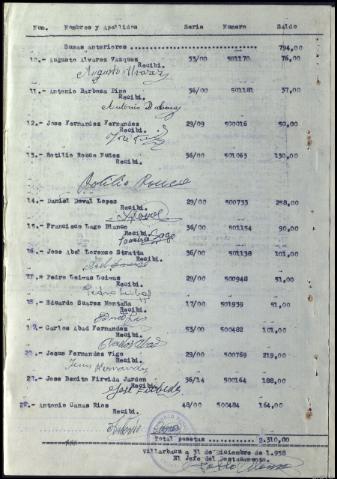 Num. Nombres y Apellidos Serie Numero Saldo
Sumas Anteriores 794,00
10.- Augusto Alvarez Vazquez 33/00 501170 76,00
Recibi.
11.- Antonio Barbosa 36/00 501181 37,00
Recibi.
12.- Jose Fernandez Fernandez 29/09 500016 50,00
Recibi.
13.- Rotilio Rouco Nuñez 36/00 501063 130,00
Recibi.
Rotilio Rouco
14.- Daniel Doval Lopez 29/00 500733 258,00
Recibi.
15.- Francisco Lago Blanco 36/00 501154 90,00
Recibi.
16.- Jose Abal Lorenzo 36/00 501138 101,00
Recibi.
17.- Pedro 29/00 500948 51,00
Recibi.
18.- Eduardo Suarez Montaña 17/00 501939 51,00
Recibi.
19.- Carlos Abad Fernandez 53/00 500482 101,00
Recibi.
20.- Jesus Fernandez Vigo 29/00 500769 219,00
Recibi.
21.- Jose Benito Firvida Jardon 36/14 500164 188,00
Recibi.
22.- Antonio Canas Rios 48/00 500484 164,00
Recibi.
Total pesetas 2.310,00
Villarbacu a 31 de Diciembre de 1.958
El Jefe del Destacamento.